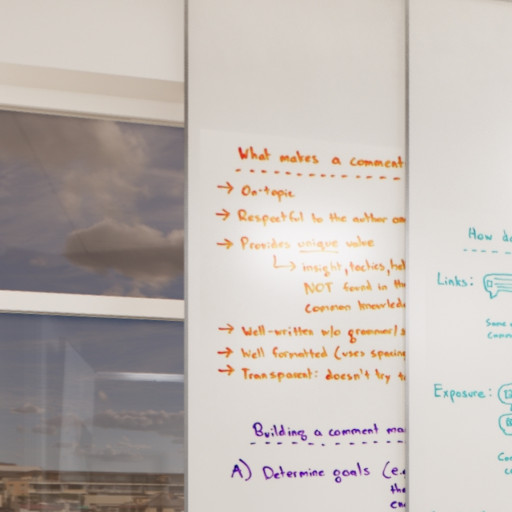 What makes a comment
→ On-topic
→ Respectful to the author
→ Provides unique value
↳ insight, tactics,
NOT found in
common
→ Well-written w/o grammar/s
→ Well formatted (uses spacing
→ Transparent: doesn't try
Building a comment
A) Determine goals (e.
How
Links:
Exposure: